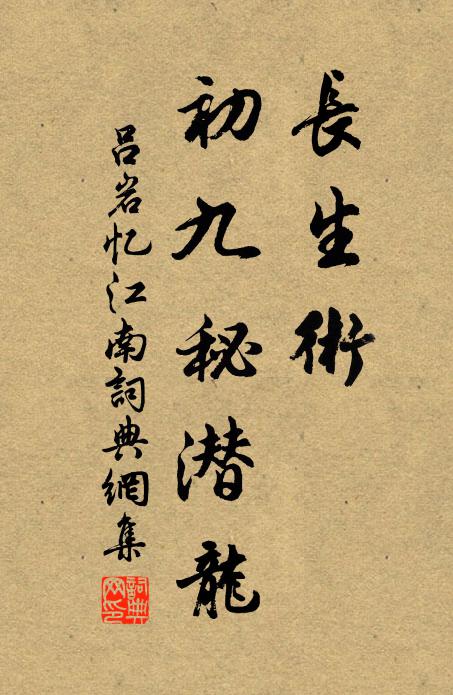 長生術
初九秘潛龍
吕岩忆江南詞典網集
詞典网印